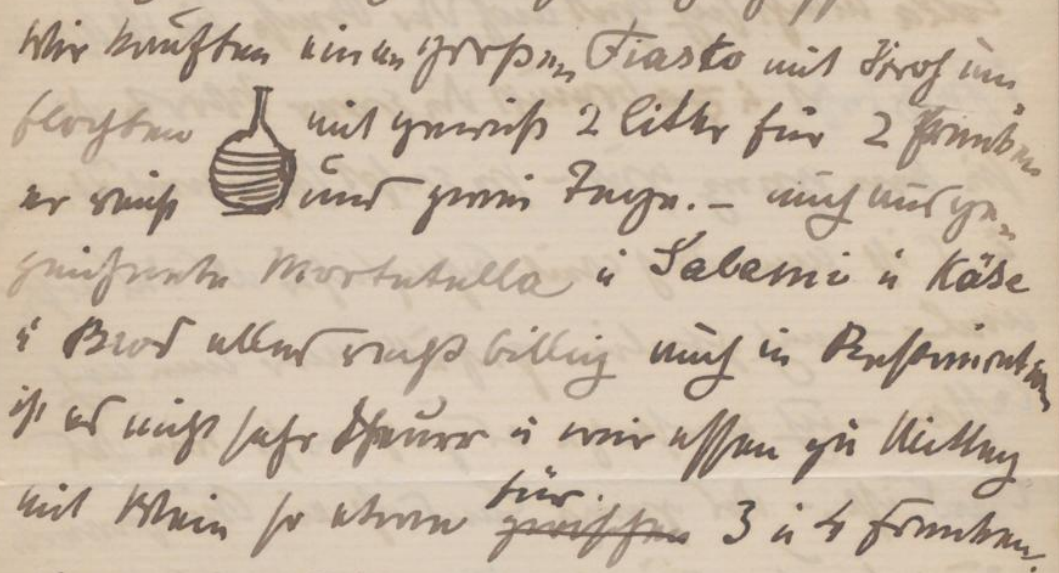 Wir kauften einen großen Fiasko mit Stroh um
flochten mit gewiß 2 liter für 2 Franken
er reicht und zwei Tage. – auch ausge-
zeichnete Mortatella u Salami u Käse
u Brod alles recht billig auch in Restaurant
ist es nicht sehr theuer u wir essen zu Mittag
mit Wein so etwa für zwischen 3 u 4 Franken.